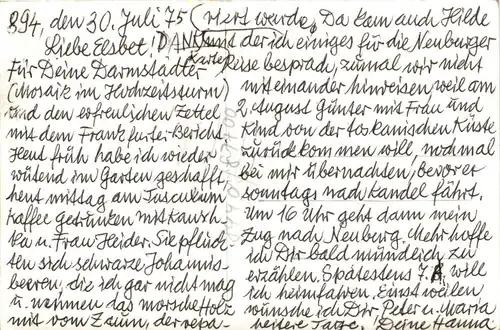 894, den 30. Juli 75
Liebe Elsbet! DANK
Für Deine Darmstädter Karte
(Mosaik im Hochzeitsturm)
und den erfreulichen Zettel
mit dem Frankfurter-Bericht.
Heut früh habe ich wieder
wütend im Garten geschafft,
heut mittag am Tusculum
Kaffee getrunken mit
ka u. Frau Heider. Sie pflück-
ten sich schwarze Johannis-
beeren, die ich gar nicht mag
u. nahmen das morsche Holz
mit vom Zaun, der repa-
riert wurde. Da kam auch Hilde
mit der ich einiges für die Neuburger
Reise besprach, zumal wir nicht
miteinander hinreisen, weil am
2. August Günter mit Frau und
Kind von der toskanischen Küste
zurückkommen will, nochmal
bei mir übernachten, bevor er
sonntags nach Kandel fährt.
Um 16 Uhr geht dann mein
Zug nach Neuburg. Mehr hoffe
ich Dir bald mündlich zu
erzählen. Spätestens 7. 8. will
ich heimfahren. Einstweilen
wünsche ich Dir Peter u. Maria
heitere Tage. Deine Hanna